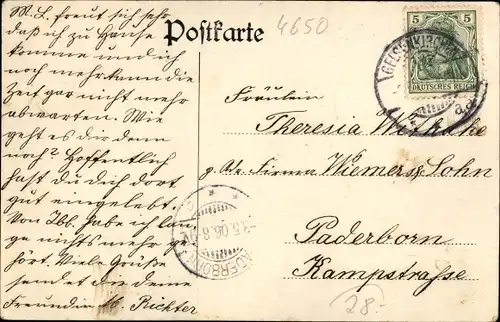 M. L. freut sich sehr
daß ich zu Hause
komme und ich
noch mehr kann die
Zeit gar nicht mehr
abwarten. Wie
geht es dir denn
noch? Hoffentlich
hast du dich dort
gut eingelebt.
Von Ibb. habe ich lan-
ge nichts mehr ge-
hört. Viele Grüße
sendet dir deine
Freundin M. Richter
Postkarte
4650
5 5
DEUTSCHES REICH
GELSENKIRCHEN
Fräulein
Theresia
g. Adr. Firma Wiemers & Sohn
Paderborn
Kampstrasse
PADERBORN
28.-